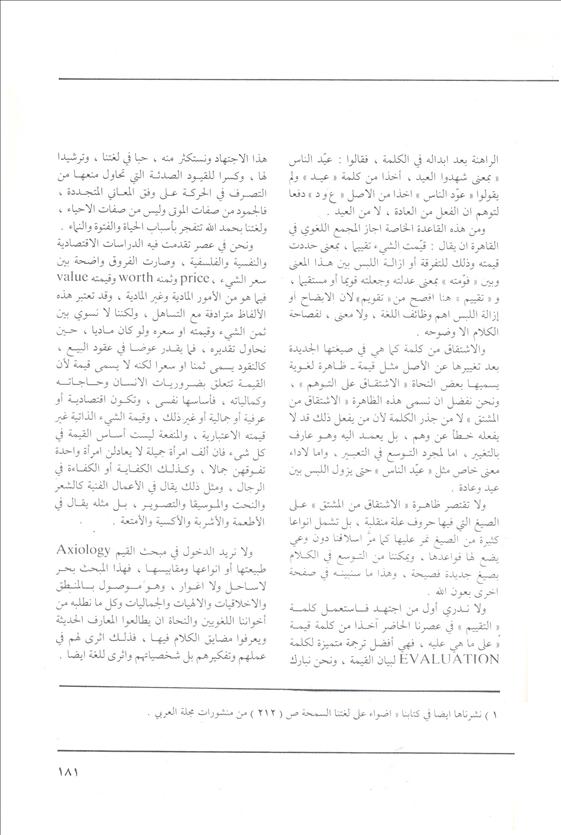 الراهنة بعد ابداله في الكلمة ، فقالوا : عيّد الناس
« بمعنى شهدوا العيد ، أخذا من كلمة « عيـد » ولم
يقولوا « عوّد الناس » اخذا من الاصل « ع و د » دفعا
لتوهم ان الفعل من العادة ، لا من العيد .
ومن هذه القاعدة الخاصة اجاز المجمع اللغوي في
القاهرة ان يقال : قيّمت الشيء تقييما ، بمعنى حددت
قيمته وذلك للتفرقة أو ازالـة اللبس بين هـذا المعنى
وبين « قوّمته » بمعنى عدلته وجعلته قويما أو مستقيما ،
و « تقييم » هنا افصح من « تقويم » لان الايضاح او
إزالة اللبس اهم وظائف اللغة ، ولا معنى ، لفصاحة
الكلام الا وضوحه .
والاشتقاق من كلمة كما هي في صيغتها الجديدة
بعد تغييرها عن الأصل مثـل قيمة ـ ظـاهرة لغـوية
يسميهـا بعض النحاة « الاشتقـاق على التـوهم » ،
ونحن نفضل ان نسمى هذه الظاهرة « الاشتقاق من
المشتق » لا من جذر الكلمة لأن من يفعل ذلك قد لا
يفعله خـطأ عن وهم ، بل يعمـد اليه وهـو عارف
بالتغيير ، اما لمجرد التـوسع في التعبيـر ، واما لاداء
معنى خاص مثل « عيّد الناس » حتى يزول اللبس بين
عيد وعادة .
ولا تقتصر ظاهـرة « الاشتقاق من المشتق » عـلى
الصيغ التي فيها حروف علة منقلبة ، بل تشمل انواعا
كثيرة من الصيغ نمر عليها كما مرّ اسلافنا دون وعي
يضع لها قواعدها ، ويمكننا من التـوسع في الكـلام
بصيغ جديدة فصيحة ، وهذا ما سنبينـه في صفحة
اخرى بعون الله .
ولا نـدري أول من اجتهـد فـاستعمـل كلمـة
« التقييم » في عصرنا الحاضر أخـذا من كلمة قيمـة
على ما هي عليه ، فهي أفضل ترجمة متميزة لكلمة
EVALUATION لبيان القيمة ، ونحن نبارك
هذا الاجتهاد ونستكثر منه ، حبا في لغتنا ، وترشيدا
لها ، وكسرا للقيـود الصدئـة التي تحاول منعهـا من
التصرف في الحركـة عـلى وفق المعـاني المتجـددة ،
فالجمود من صفات الموتى وليس من صفات الاحياء ،
ولغتنا بحمد الله تتفجر بأسباب الحياة والفتوة والنماء .
ونحن في عصر تقدمت فيه الدراسات الاقتصادية
والنفسية والفلسفية ، وصارت الفروق واضحة بين
سعر الشيء ، price وثمنه worth وقيمته value
فيما هو من الأمور المادية وغير المادية ، وقد تعتبر هذه
الألفاظ مترادفة مع التسـاهل ، ولكننـا لا نسوي بين
ثمن الشيء وقيمته او سعره ولو كان مـاديا ، حـين
نحاول تقديره ، فما يقـدر عوضـا في عقود البيـع ،
كالنقود يسمى ثمنا او سعرا لكنه لا يسمى قيمة لأن
القيمـة تتعلق بضـروريـات الانسـان وحـاجـاتـه
وكمالياته ، فـأساسها نفسى ، وتكـون اقتصاديـة أو
عرفية أو جمالية أو غير ذلك ، وقيمة الشيء الذاتية غير
قيمته الاعتبارية ، والمنفعة ليست أسـاس القيمة في
كل شيء فان ألف امرأة جميلة لا يعادلن امرأة واحدة
تفـوقهن جمالا ، وكـذلـك الكفـايـة أو الكفاءة في
الرجال ، ومثل ذلك يقال في الأعمال الفنية كالشعر
والنحت والمـوسيقا والتصـويـر ، بـل مثله يقـال في
الأطعمة والأشربة والأكسية والأمتعة .
ولا نريد الدخول في مبحث القيم Axiology
طبيعتها أو انواعها ومقاييسهـا ، فهذا المبحث بحـر
لاسـاحـل ولا اغـوار ، وهو مـوصـول بـالمنـطق
والاخلاقيات والالهيات والجماليات وكل ما نطلبه من
أخواننا اللغويين والنحاة ان يطالعوا المعارف الحديثة
ويعرفوا مضايق الكلام فيهـا ، فذلـك اثرى لهم في
عملهم وتفكيرهم بل شخصياتهم واثرى للغة ايضا .
١ ) نشرناها ايضا في كتابنا « اضواء على لغتنا السمحة ص ( ٢١٢ ) من منشورات مجلة العربي .
١٨١